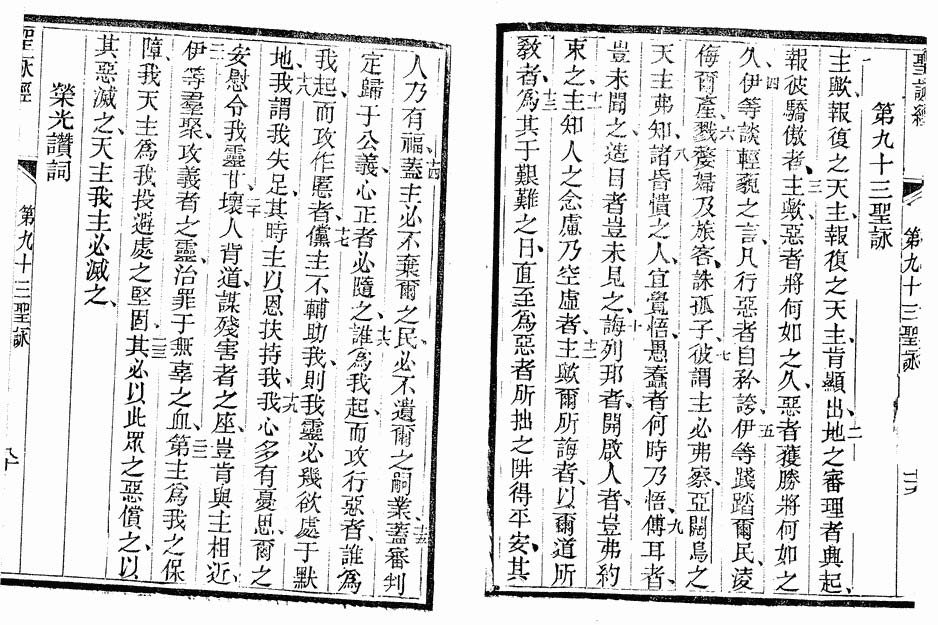 聖詠經 第九十三聖詠
第九十三聖詠
一主歟報復之天主、報復之天主、肯顯出、二地之審理者典起、
報彼驕傲者、三主歟、惡者將何如之久、惡者獲勝將何如之
久、四伊等談輕藐之言、凡行惡者自矜誇、五伊等踐踏爾民、凌
侮爾產、六戮嫠婦及旅客、誅孤子、七彼謂主必弗察、亞闊烏之
天主弗知、八諸昏憒之人、宜覺悟、愚蠢者何時乃悟、九傅耳者、
豈未聞之、造目者豈未見之、十誨列邦者、開啟人者、豈弗約
束之、十一主知人之念慮乃空虛者、十二主歟爾所誨者、以爾道所
教者、十三為其于艱難之日、直至為惡者所拙之阱、得平安、其
人乃有福、十四蓋主必不棄爾之民、必不遺爾之嗣業、十五蓋審判
定歸于公義、心正者必隨之、十六誰為我起而攻行惡者、誰為
我起而攻作慝者、十七儻主不輔助我、則我靈必幾欲處于默
地、十八我謂我失足、其時主以恩扶持我、十九我心多有憂思、爾之
安慰令我靈甘、二十壞人背道、謀殘害者之座、豈肯與主相近、
二一伊等羣聚攻義者之靈、治罪于無辜之血、二二第主為我之保
障、我天主為我投避處之堅固、二三其必以此眾之惡償之、以
其惡滅之、天主我主必滅之、
榮光讚詞
聖詠經 第九十三聖詠